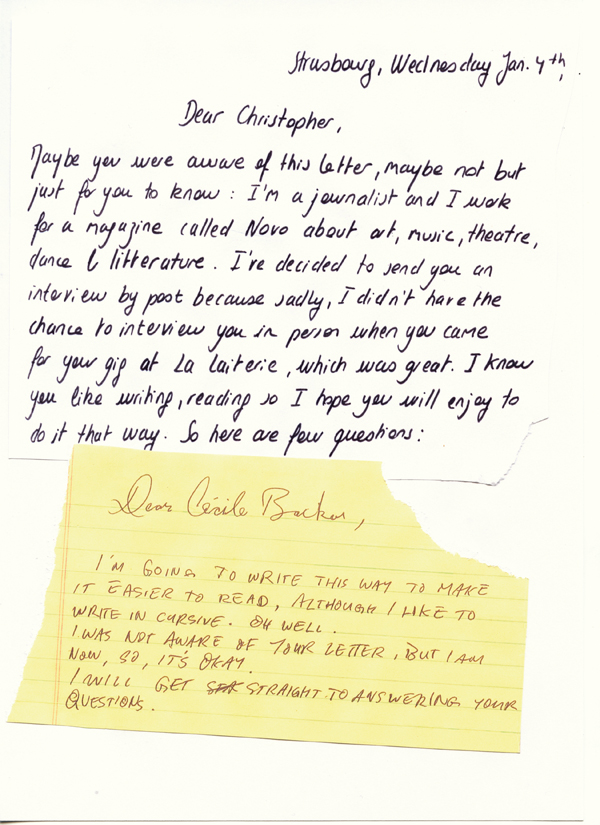 Strasbourg, Wednesday Jan. 4th,
Dear Christopher,
Maybe you were aware of this letter, maybe not but
just for you to know : I'm a journalist and I work
for a magazine called Novo about art, music, theatre,
dance & litterature. I've decided to send you an
interview by post because sadly, I didn't have the
chance to interview you in person when you came
for your gig at La Laiterie, which was great. I know
you like writing, reading so I hope you will enjoy to
do it that way. So here are few questions:
Dear Cécile Becker,
I'M GOING TO WRITE THIS WAY TO MAKE
IT EASIER TO READ, ALTHOUGH I LIKE TO
WRITE IN CURSIVE. OH WELL.
I WAS NOT AWARE OF YOUR LETTER, BUT I AM
NOW, SO, IT'S OKAY.
I WILL GET STRAIGHT TO ANSWERING YOUR
QUESTIONS.